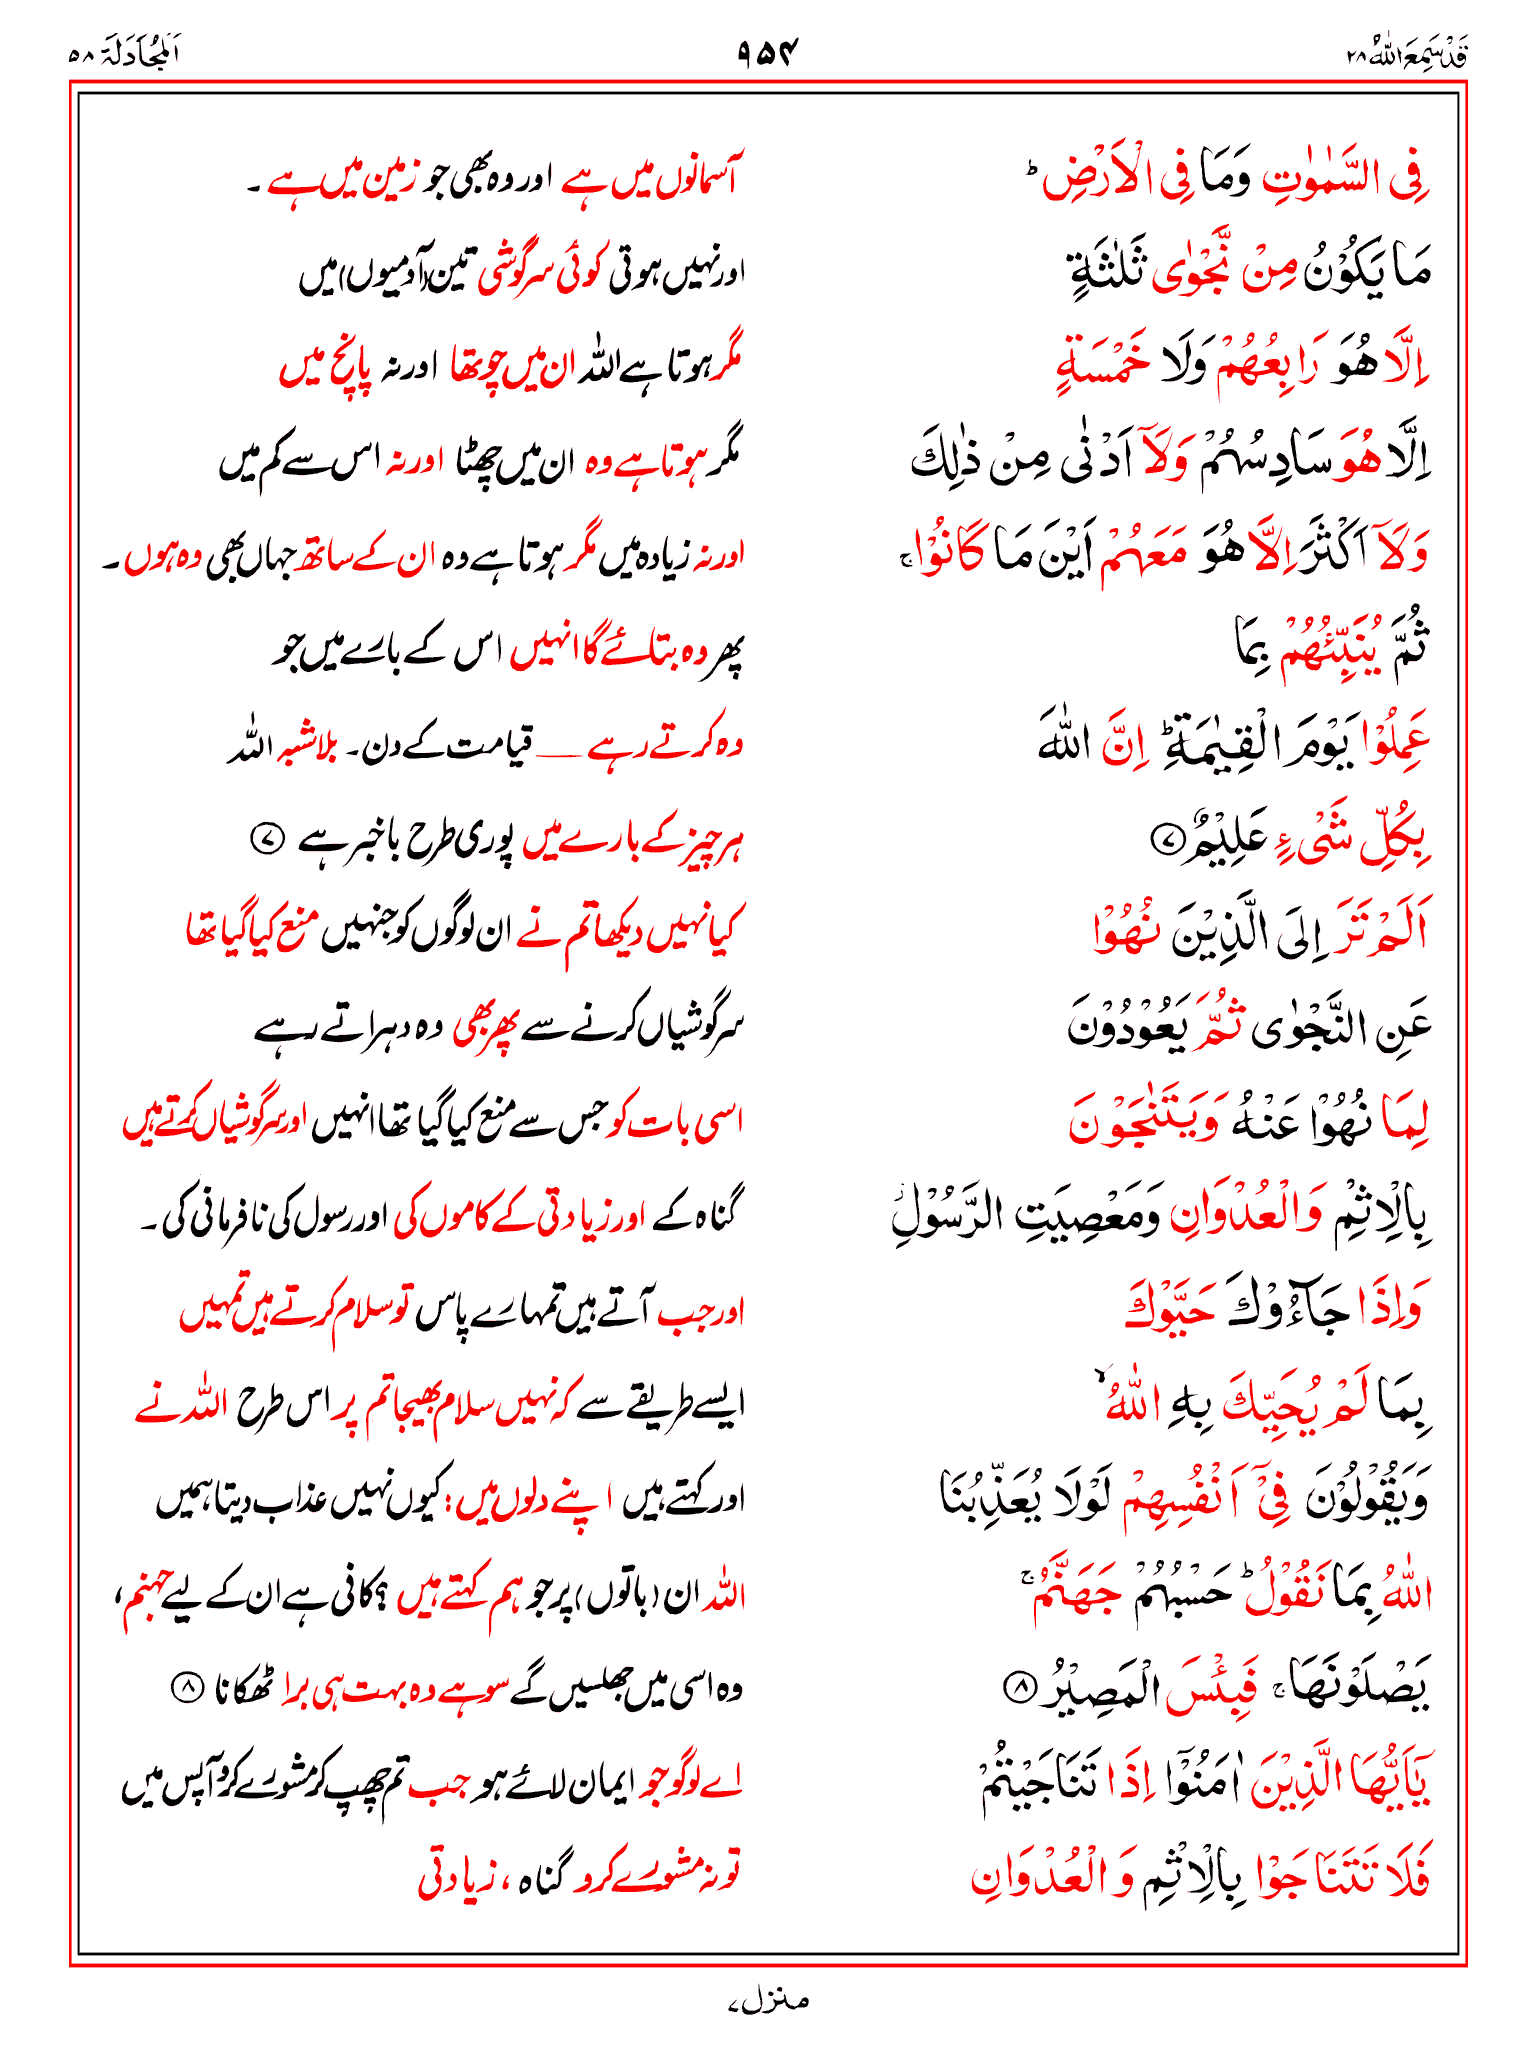 قَدْ سَمِعَ اللّٰهُ ۲۸ ۹۵۴ اَلْمُجَادَلَة ۵۸
فِى السَّمٰوٰتِ وَمَا فِى الْاَرْضِ ؕ آسمانوں میں ہے اور وہ بھی جو زمین میں ہے ۔
مَا يَكُوْنُ مِنْ نَّجْوٰى ثَلٰثَةٍ اور نہیں ہوتی کوئی سرگوشی تین (آدمیوں) میں
اِلَّا هُوَ رَابِعُهُمْ وَلَا خَمْسَةٍ مگر ہوتا ہے اللہ ان میں چوتھا اور نہ پانچ میں
اِلَّا هُوَ سَادِسُهُمْ وَلَاۤ اَدْنٰى مِنْ ذٰلِكَ مگر ہوتا ہے وہ ان میں چھٹا اور نہ اس سے کم میں
وَلَاۤ اَكْثَرَ اِلَّا هُوَ مَعَهُمْ اَيْنَ مَا كَانُوْا ۚ اور نہ زیادہ میں مگر ہوتا ہے وہ ان کے ساتھ جہاں بھی وہ ہوں ۔
ثُمَّ يُنَبِّئُهُمْ بِمَا پھر وہ بتائے گا انہیں اس کے بارے میں جو
عَمِلُوْا يَوْمَ الْقِيٰمَةِ ؕ اِنَّ اللّٰهَ وہ کرتے رہے __ قیامت کے دن۔ بلاشبہ اللہ
بِكُلِّ شَىْءٍ عَلِيْمٌ ۷ ہر چیز کے بارے میں پوری طرح باخبر ہے ۷
اَلَمْ تَرَ اِلَى الَّذِيْنَ نُهُوْا کیا نہیں دیکھا تم نے ان لوگوں کو جنہیں منع کیا گیا تھا
عَنِ النَّجْوٰى ثُمَّ يَعُوْدُوْنَ سرگوشیاں کرنے سے پھر بھی وہ دہراتے رہے
لِمَا نُهُوْا عَنْهُ وَيَتَنٰجَوْنَ اسی بات کو جس سے منع کیا گیا تھا انہیں اور سرگوشیاں کرتے ہیں
بِالْاِثْمِ وَالْعُدْوَانِ وَمَعْصِيَتِ الرَّسُوْلِ ؗ گناہ کے اور زیادتی کے کاموں کی اور رسول کی نافرمانی کی ۔
وَاِذَا جَآءُوْكَ حَيَّوْكَ اور جب آتے ہیں تمہارے پاس تو سلام کرتے ہیں تمہیں
بِمَا لَمْ يُحَيِّكَ بِهِ اللّٰهُ ۙ ایسے طریقے سے کہ نہیں سلام بھیجا تم پر اس طرح اللہ نے
وَيَقُوْلُوْنَ فِىْۤ اَنْفُسِهِمْ لَوْلَا يُعَذِّبُنَا اور کہتے ہیں اپنے دلوں میں: کیوں نہیں عذاب دیتا ہمیں
اللّٰهُ بِمَا نَقُوْلُ ؕ حَسْبُهُمْ جَهَنَّمُ ۚ اللہ ان (باتوں) پر جو ہم کہتے ہیں ؟ کافی ہے ان کے لیے جہنم ،
يَصْلَوْنَهَا ۚ فَبِئْسَ الْمَصِيْرُ ۸ وہ اسی میں جھلسیں گے سو ہے وہ بہت ہی برا ٹھکانا ۸
يٰۤاَيُّهَا الَّذِيْنَ اٰمَنُوْۤا اِذَا تَنَاجَيْتُمْ اے لوگو جو ایمان لائے ہو جب تم چھپ کر مشورے کرو آپس میں
فَلَا تَتَنَاجَوْا بِالْاِثْمِ وَ الْعُدْوَانِ تو نہ مشورے کرو گناہ ، زیادتی
منزل ۷